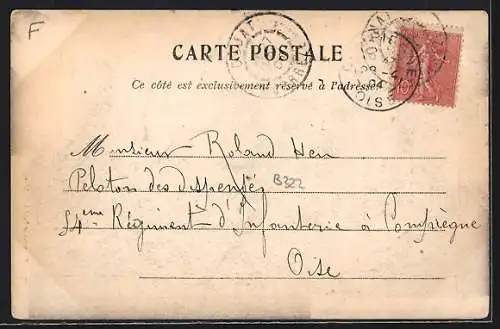 F
CARTE POSTALE
Ce côté est exclusivement réservé à l'adresse
Monsieur Roland Hen
Peloton des dispensés
B322
54eme Régiment d'Infanterie à Compiègne
Oise